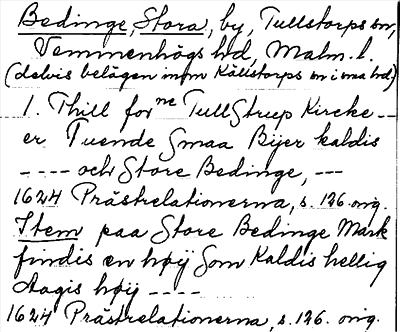 Bedinge, Stora, by, Tullstorps sn,
Vemmenhögs hd, Malm. l.
(delvis belägen inom Källstorps sn i sma hd)
1. Thill for ne Tull Strup Kircke --
er Tuende Smaa Bÿer kaldis
---- och Store Bedinge, ---
1624 Prästrelationerna, s. 136 orig.
Item paa Store Bedinge Mark
findis en høÿ Som Kaldis hellig
Aagis høÿ ----
1624 Prästrelationerna, s. 136. orig.